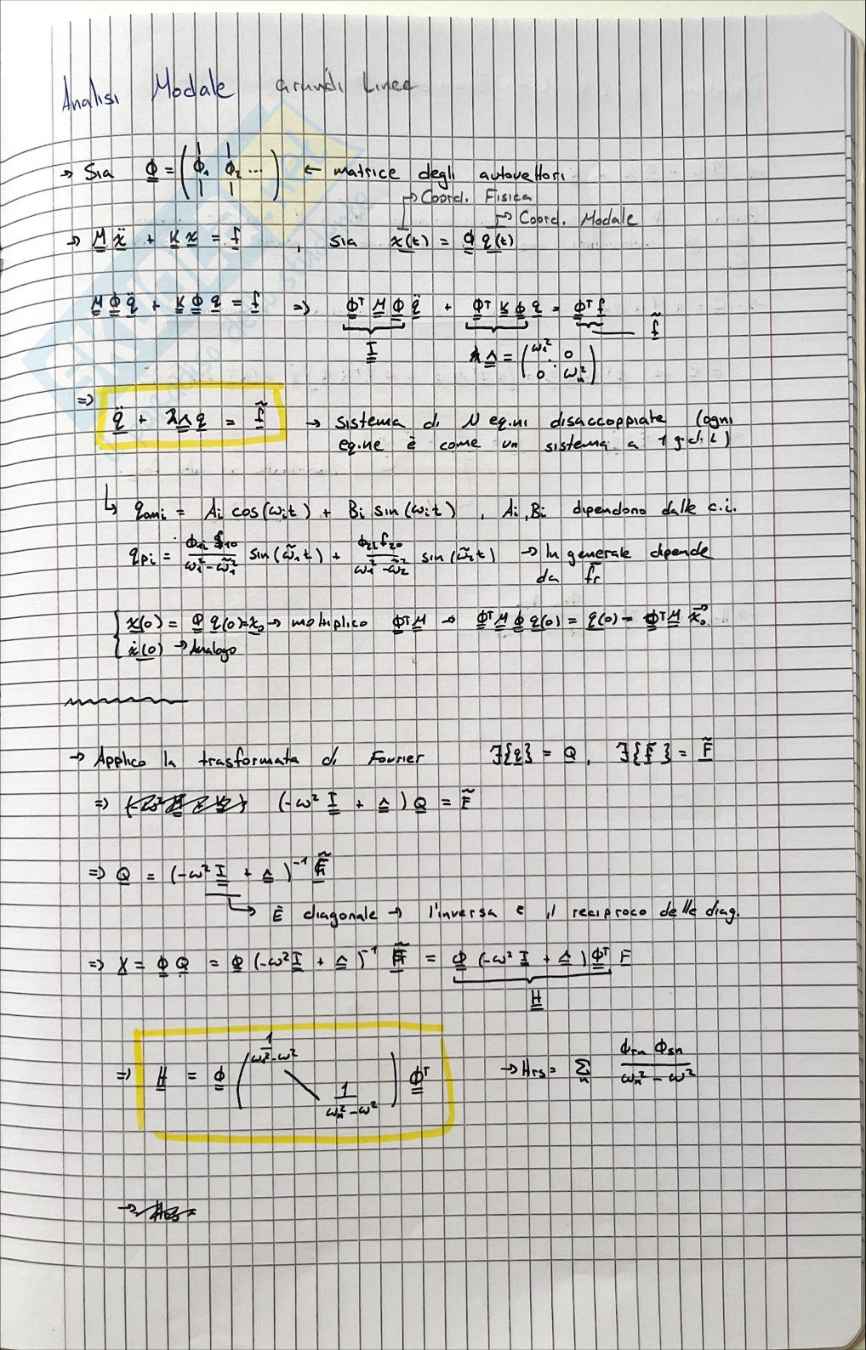 Analisi Modale a Grandi Linee
→ Sia Φ = (Φ₁ Φ₂ ...) ← matrice degli autovettori
→ Coord. Fisica
→ Coord. Modale
→ M ẍ + K x = f , sia x(t) = Φ q(t)
M Φ q̈ + K Φ q = f => Φᵀ M Φ q̈ + Φᵀ K Φ q = Φᵀ f
f̃
I Λ = (ω₁² 0 0 ωₙ²)
=> q̈ + Λ q = f̃ → sistema di N eq.ni disaccoppiate (ogni
eq.ne è come un sistema a 1 g.d.l)
↳ qomi = Ai cos(ωit) + Bi sin(ωit) , Ai, Bi dipendono dalle c.i.
qpi = sin(ω̃₁t) + sin(ω̃₂t) → In generale dipende
da
{ x(0) = Φ q(0) = x₀ → moltiplico Φᵀ M → Φᵀ M Φ q(0) = q(0) = Φᵀ M x₀
{ ẋ(0) → Analogo
→ Applico la trasformata di Fourier F{q} = Q, F{f̃} = F̃
=> (-ω² I + Λ) Q = F̃
=> Q = (-ω² I + Λ)⁻¹ F̃
↳ È diagonale → l'inversa è il reciproco delle diag.
=> X = Φ Q = Φ (-ω² I + Λ)⁻¹ F̃ = Φ (-ω² I + Λ) Φᵀ F
H
=> H = Φ (1/(ω₁²-ω²) \ 1/(ωₙ²-ω²)) Φᵀ → Hrs = Σn Φrn Φsn/(ωn² - ω²)